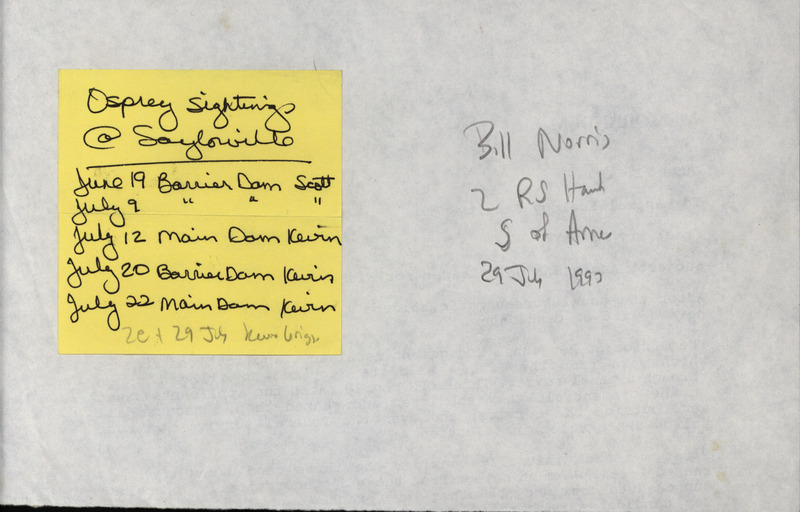 Osprey Sightings
@ Saylorville
June 19 Barrier Dam Scott
July 9 " " "
July 12 Main Dam Kevin
July 20 Barrier Dam Kevin
July 22 Main Dam Kevin
+ 29 July Kevin
Bill Norris
2 RS Hawk
S of Ames
29 July